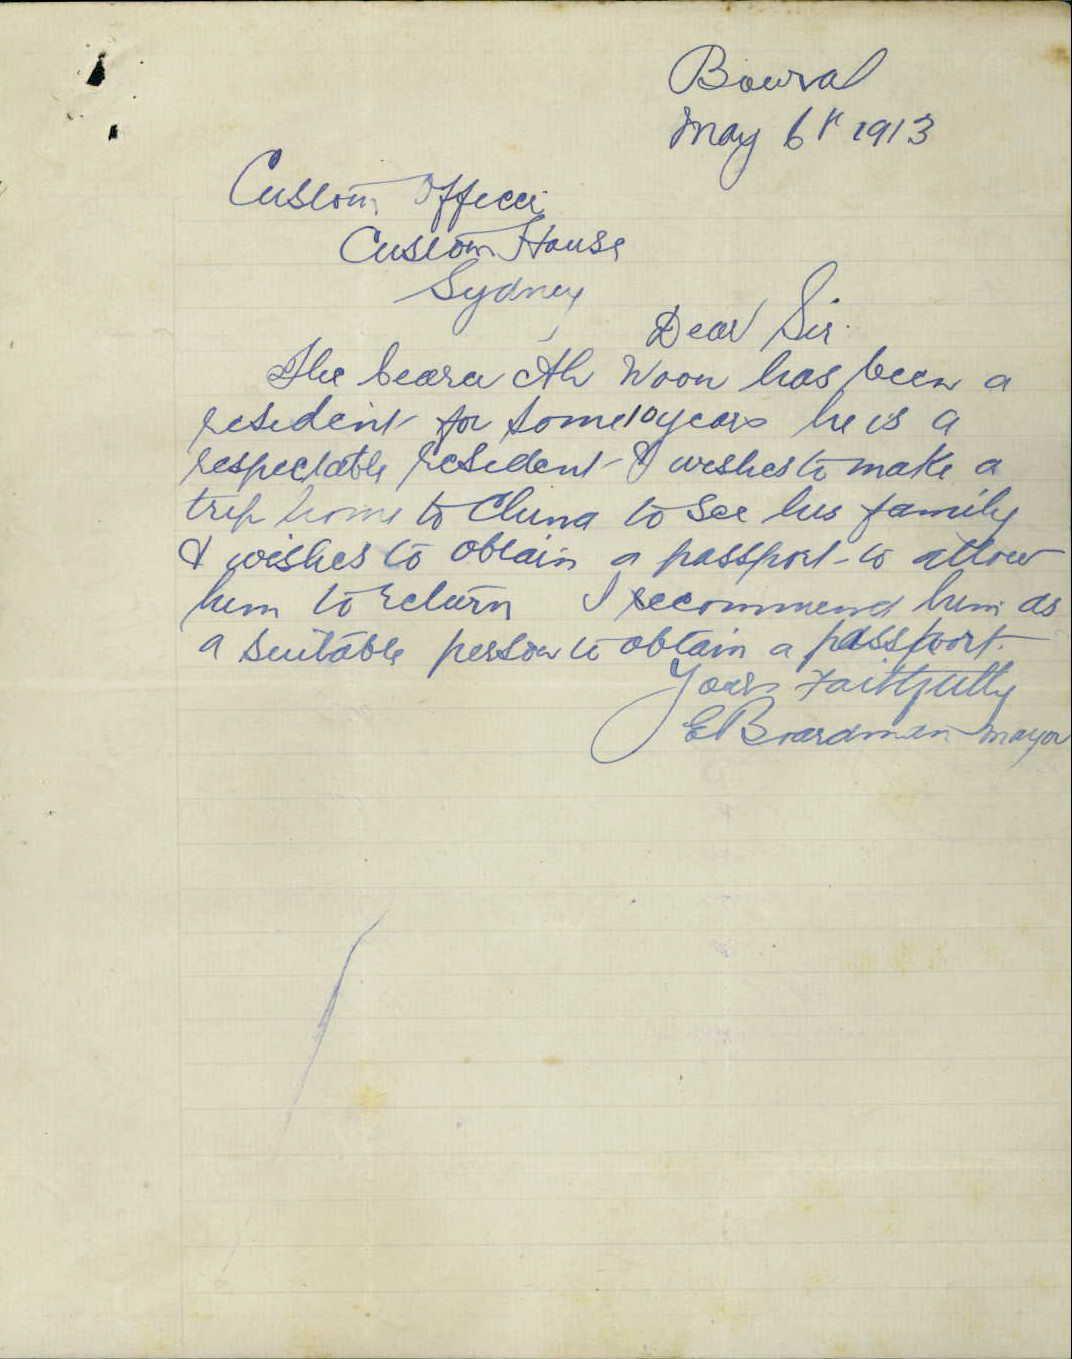 Bowral
May 6th 1913
Custom Officer
Custom House
Sydney
Dear Sir.
The bearer Ah Woon has been a
resident for some 10 years he is a
respectable resident & wishes to make a
trip home to China to see his family
& wishes to obtain a passport to allow
him to return I recommend him as
a suitable person to obtain a passport.
Yours Faithfully
E Boardman Mayor